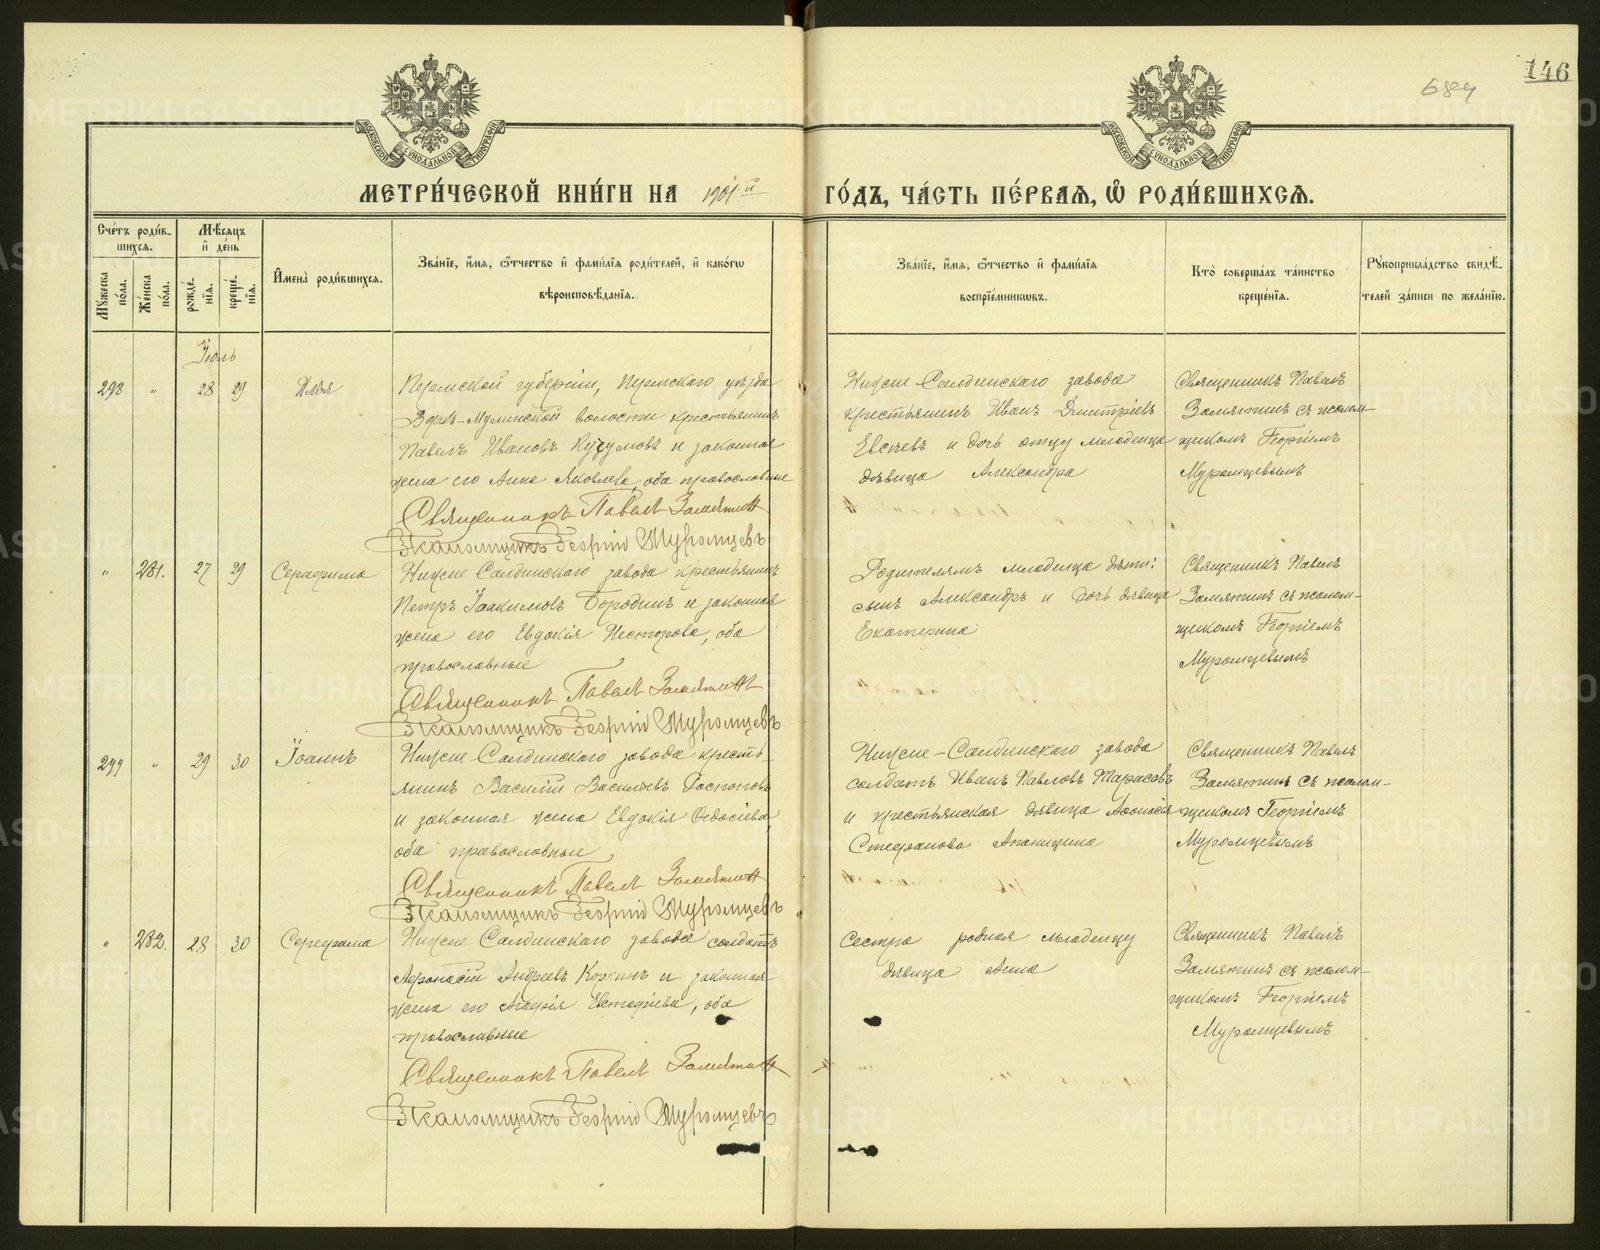 146
684
МЕТРИ́ЧЕСКОЙ КНИ́ГИ НА 1901й ГО́ДЪ, ЧА́СТЬ ПЕ́РВАЯ, Ѽ РОДИ́ВШИХСЯ.
Сче́тъ роди́в-
шихся.
Мѣ́сяцъ
и҆ де́нь
Му́жеска
по́ла.
Же́нска
по́ла.
рожде́-
нїѧ.
креще́-
нїѧ.
И҆мена̀ роди́вшихся.
Зва́нїе, и҆́мѧ, ѻ҆́тчество и҆ фами́лїѧ роди́телей, и҆ како́гѡ
вѣроисповѣ́данїѧ.
Зва́нїе, и҆́мѧ, ѻ҆́тчество и҆ фами́лїѧ
воспрїе́мникѡвъ.
Кто̀ соверша́лъ та́инство
креще́нїѧ.
Рꙋкоприкла́дство свидѣ́-
телей за́писи по жела́нїю.
Іюль
298 " 28 29 Илья
Пермской губерніи, Пермскаго уѣзда
Верх-Муллинской волости крестьянинъ
Павелъ Ивановъ и законная
жена его Анна Яковлева, оба православные
Священникъ Павелъ Замятинъ
Псаломщикъ Георгій Муромцевъ
Нижне-Салдинскаго завода
крестьянинъ Иванъ Дмитріевъ
Евсѣевъ и дочь отцу младенца
дѣвица Александра
Священникъ Павелъ
Замятинъ съ псалом-
щикомъ Георгіемъ
Муромцевымъ
" 281. 27 29 Серафима
Нижне Салдинскаго завода крестьянинъ
Петръ Іоакимовъ Бородинъ и законная
жена его Евдокія Нестерова, оба
православные
Священникъ Павелъ Замятинъ
Псаломщикъ Георгій Муромцевъ
Родителямъ младенца дѣти:
сынъ Александръ и дочь дѣвица
Екатерина
Священникъ Павелъ
Замятинъ съ псалом-
щикомъ Георгіемъ
Муромцевымъ
299 " 29 30 Іоаннъ
Нижне-Салдинскаго завода кресть-
янинъ Василій Васильевъ
и законная жена Евдокія Ѳедосіева,
оба православные
Священникъ Павелъ Замятинъ
Псаломщикъ Георгій Муромцевъ
Нижне-Салдинскаго завода
солдатъ Иванъ Павловъ Тарасовъ
и крестьянская дѣвица
Стефанова
Священникъ Павелъ
Замятинъ съ псалом-
щикомъ Георгіемъ
Муромцевымъ
" 282. 28 30 Серафима
Нижне Салдинскаго завода солдатъ
Афонасій Андреевъ и законная
жена его Агафія Евстафіева, оба
православные
Священникъ Павелъ Замятинъ
Псаломщикъ Георгій Муромцевъ
Сестра родная младенцу
дѣвица Анна
Священникъ Павелъ
Замятинъ съ псалом-
щикомъ Георгіемъ
Муромцевымъ
METRIKI.GASO-URAL.RU